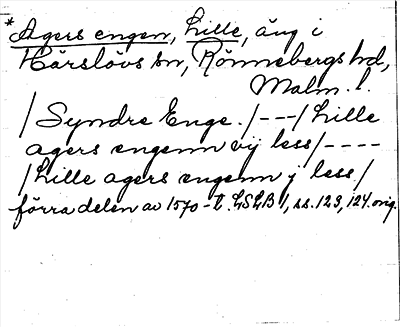 *Agers engen, Lille, äng i
Härslövs sn, Rönnebergs hd,
Malm. l.
/Syndre Enge./---/Lille
agers engenn vij less/----
/Lille agers engenn j less/
förra delen av 1570-t. LSLB 1, ss. 123, 124. orig.